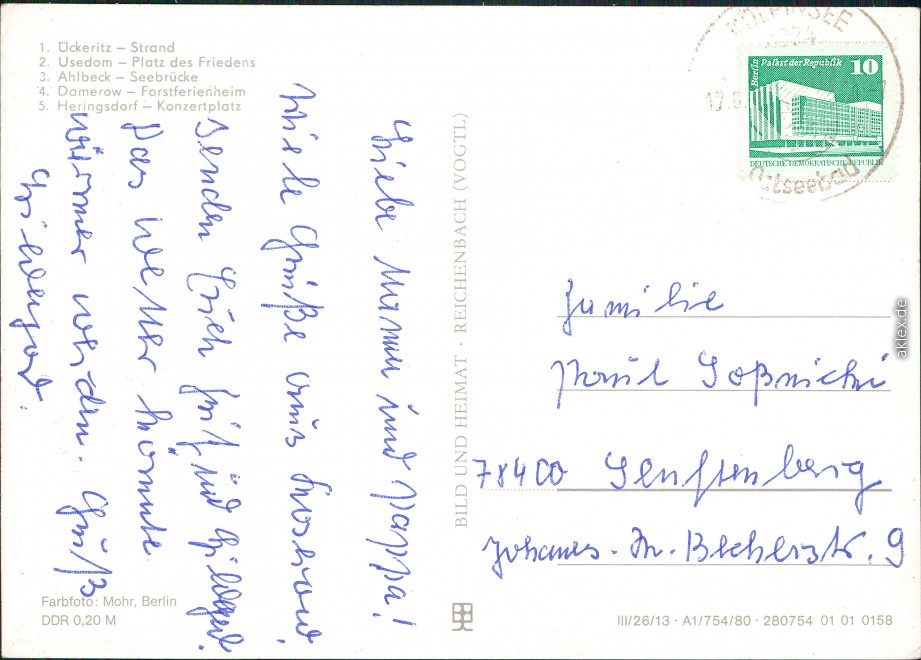 1. Ückeritz – Strand
2. Usedom – Platz des Friedens
3. Ahlbeck – Seebrücke
4. Damerow – Forstferienheim
5. Heringsdorf – Konzertplatz
KÖLPINSEE
Ostseebad
Berlin Palast der Republik 10
DEUTSCHE DEMOKRATISCHE REPUBLIK
Liebe Mama und Pappa!
Viele Grüße aus
senden Euch und
Das Wetter könnte
wärmer werden. Gruß
BILD UND HEIMAT · REICHENBACH (VOGTL)
Familie
Paul Soßnicki
78400 Senftenberg
Johannes-R. Becherstr. 9
Farbfoto: Mohr, Berlin
DDR 0,20 M
III/26/13 · A1/754/80 · 280754 01 01 0158
aklex.de